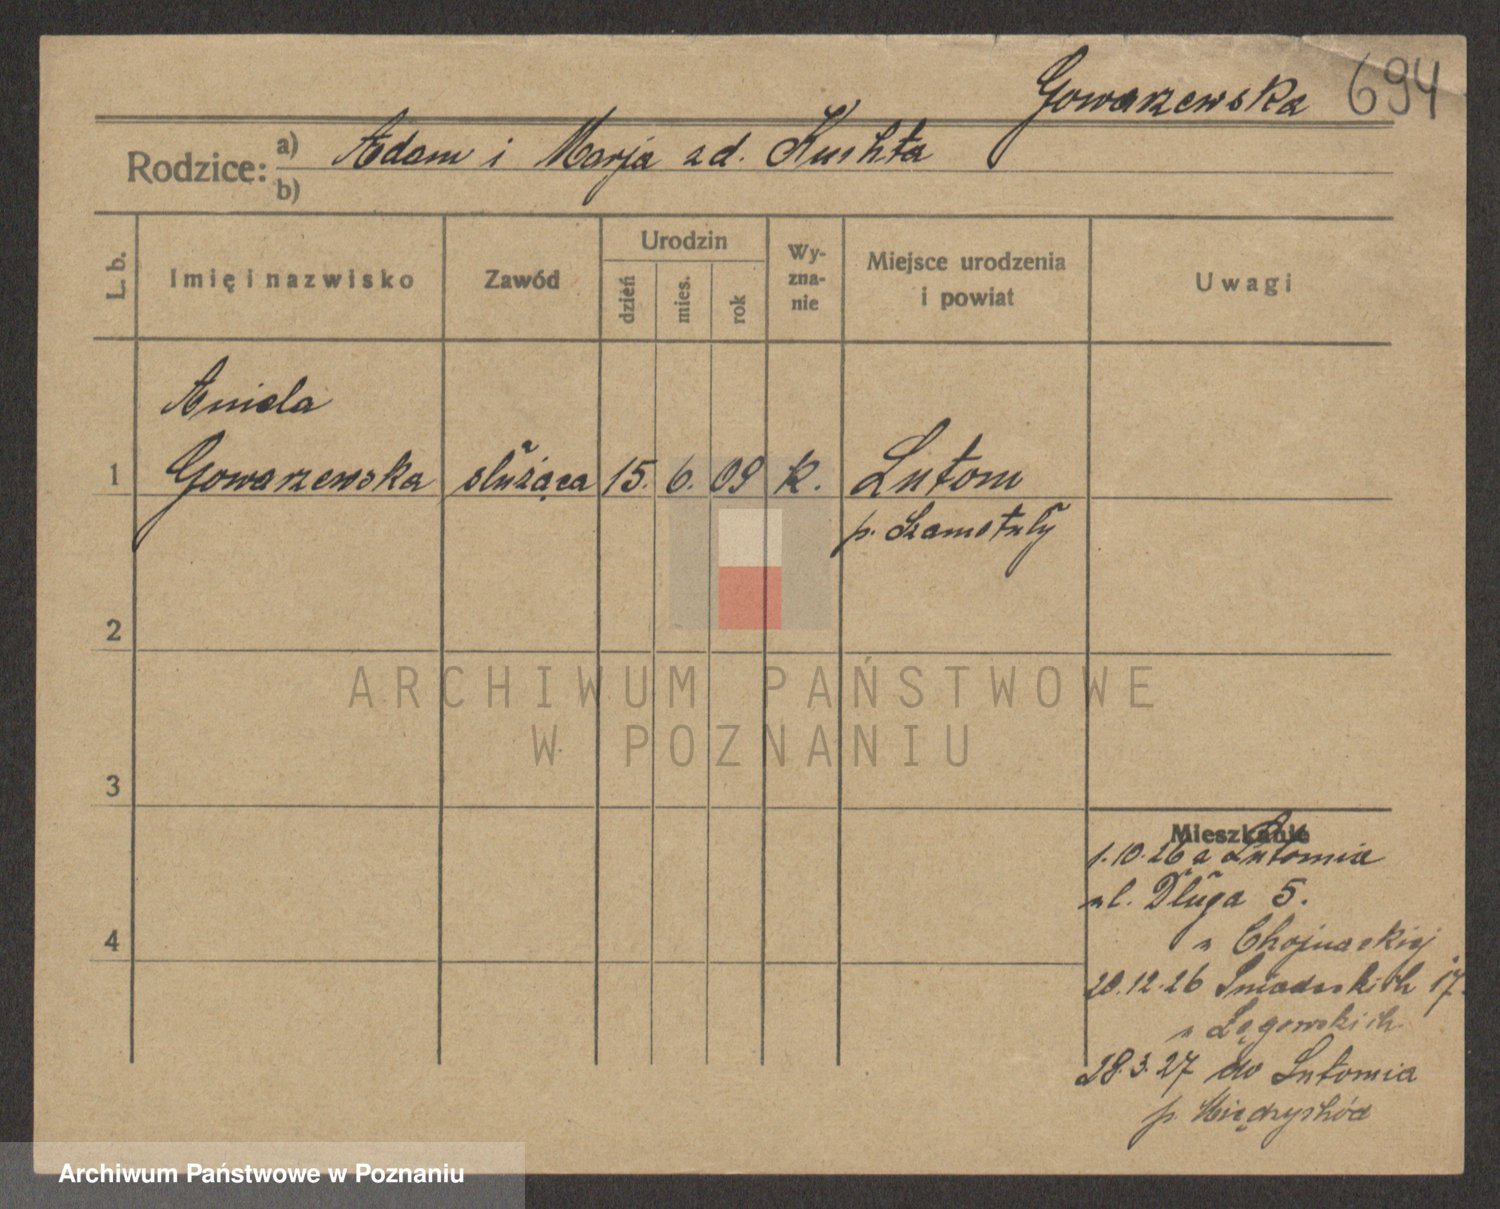 Gowarzewska 694
Rodzice: a) Adam i Marja z d. Kuchta
b)
L. b. Imię i nazwisko Zawód Urodzin dzień mies. rok Wyznanie Miejsce urodzenia i powiat Uwagi
Aniela
1 Gowarzewska służąca 15. 6. 09 k. Lutom
p. Szamotuły
2
ARCHIWUM PAŃSTWOWE
W POZNANIU
3
Mieszkanie
1.10.26 z Lutomia
ul. Długa 5.
u Chojnackiej
4
20.12.26 Śniadeckich 17.
u Łęgowskich
28.3.27 do Lutomia
p. Międzychód
Archiwum Państwowe w Poznaniu